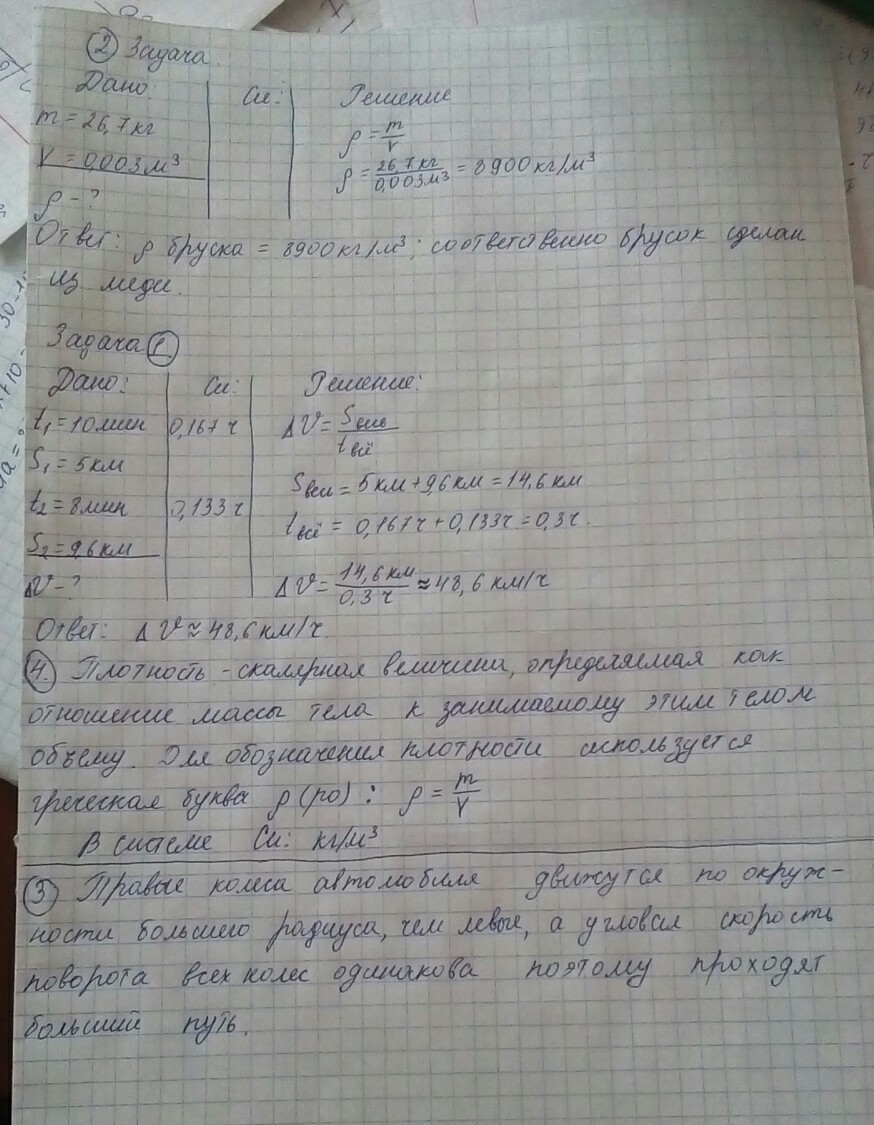 ② Задача.
Дано: Си: Решение
m = 26,7 кг
ρ = m/V
V = 0,003 м³
ρ = 26,7 кг/0,003 м³ = 8900 кг/м³
ρ - ?
Ответ: ρ бруска = 8900 кг/м³; соответственно брусок сделан
из меди.
Задача ①
Дано: Си: Решение:
t₁ = 10 мин 0,167 ч ΔV = Sвсё/tвсё
S₁ = 5 км
Sвсё = 5 км + 9,6 км = 14,6 км
t₂ = 8 мин 0,133 ч
tвсё = 0,167 ч + 0,133 ч = 0,3 ч.
S₂ = 9,6 км
ΔV - ? ΔV = 14,6 км/0,3 ч ≈ 48,6 км/ч
Ответ: ΔV ≈ 48,6 км/ч.
④. Плотность - скалярная величина, определяемая как
отношение массы тела к занимаемому этим телом
объёму. Для обозначения плотности используется
греческая буква ρ (ро): ρ = m/V
В системе Си: кг/м³
③ Правые колеса автомобиля движутся по окруж-
ности большего радиуса, чем левые, а угловая скорость
поворота всех колес одинакова поэтому проходят
больший путь.